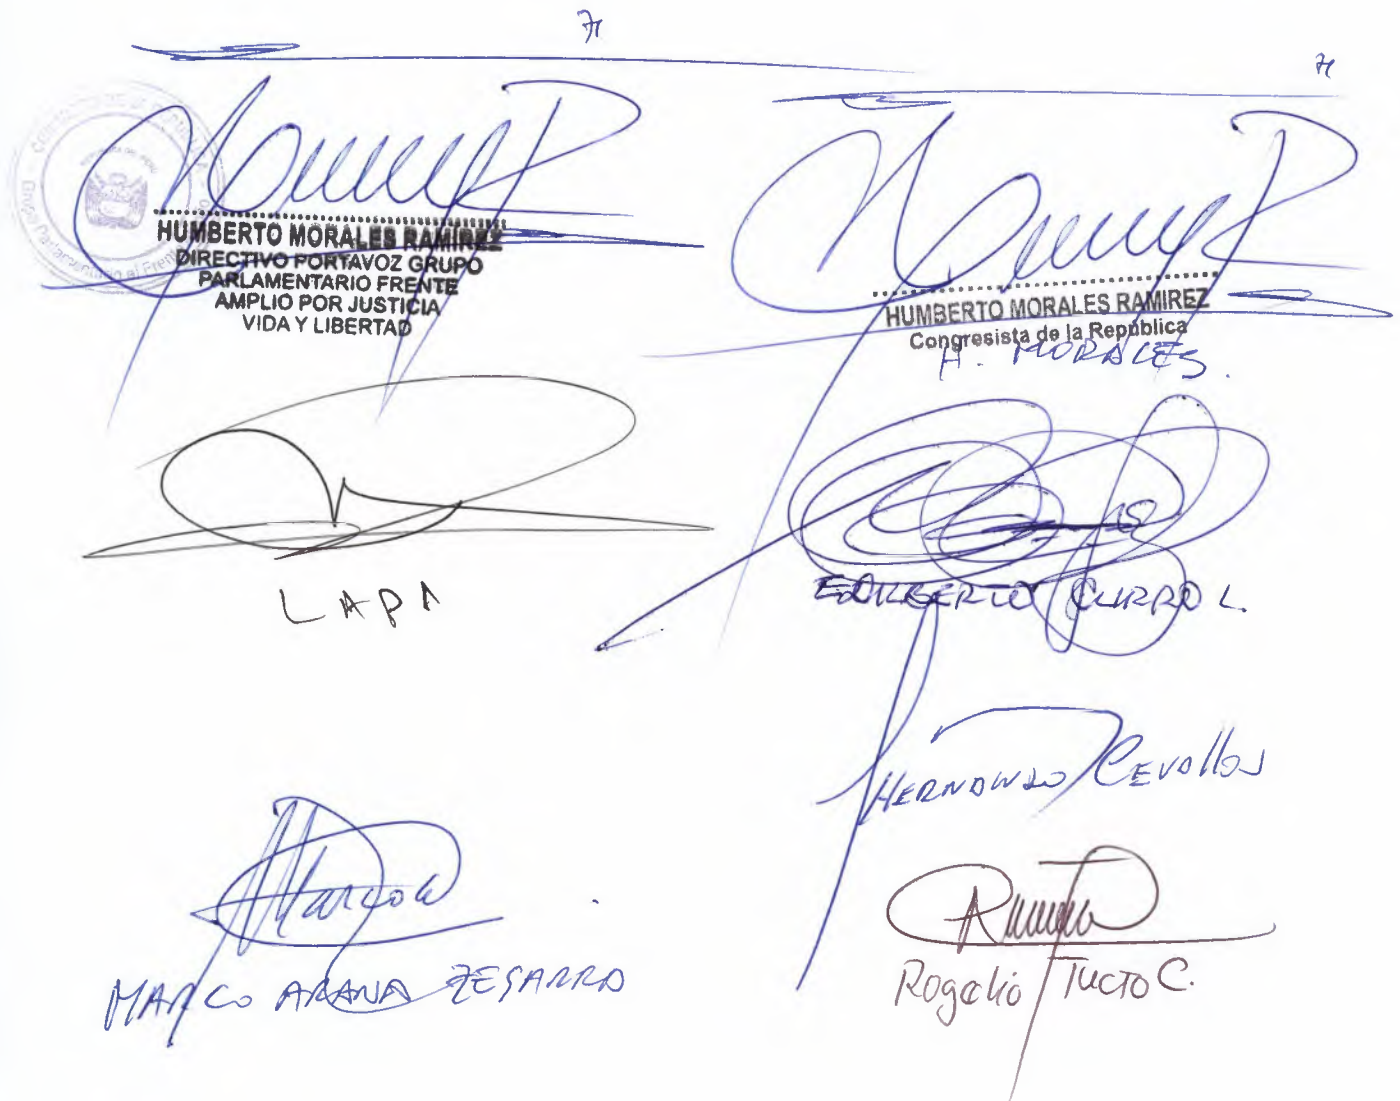 HUMBERTO MORALES RAMIREZ
DIRECTIVO PORTAVOZ GRUPO
PARLAMENTARIO FRENTE
AMPLIO POR JUSTICIA
VIDA Y LIBERTAD
HUMBERTO MORALES RAMIREZ
Congresista de la República
H. MORALES.
LAPA
EDILBERTO CURRO L.
HERNANDO CEVALLOS
MARCO ARANA ZEGARRA
Rogelio TUCTO C.